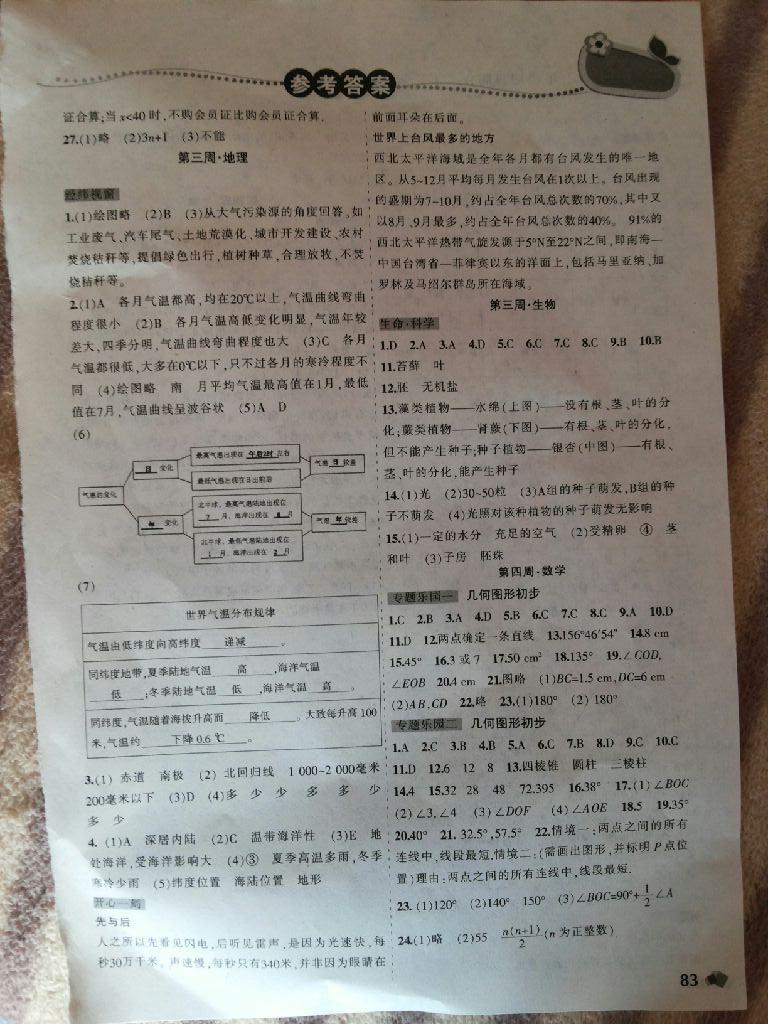 参考答案
证合算;当x<40时,不购会员证比购会员证合算.
27.(1)略 (2)3n+1 (3)不能
第三周·地理
经纬视窗
1.(1)绘图略 (2)B (3)从大气污染源的角度回答,如
工业废气、汽车尾气、土地荒漠化、城市开发建设、农村
焚烧秸秆等,提倡绿色出行,植树种草,合理放牧,不焚
烧秸秆等。
2.(1)A 各月气温都高,均在20℃以上,气温曲线弯曲
程度很小 (2)B 各月气温高低变化明显,气温年较
差大,四季分明,气温曲线弯曲程度也大 (3)C 各月
气温都很低,大多在0℃以下,只不过各月的寒冷程度不
同 (4)绘图略 南 月平均气温最高值在1月,最低
值在7月,气温曲线呈波谷状 (5)A D
(6)
气温的变化
日 变化
最高气温出现在 午后2时 左右
最低气温出现在日出前后
气温 日 较差
年 变化
北半球,最高气温陆地出现在
7 月,海洋出现在 8 月
北半球,最低气温陆地出现在
1 月,海洋出现在 2 月
气温 年 较差
(7)
世界气温分布规律
气温由低纬度向高纬度 递减 。
同纬度地带,夏季陆地气温 高 ,海洋气温
低 ;冬季陆地气温 低 ,海洋气温 高 。
同纬度,气温随着海拔升高而 降低 。大致每升高100
米,气温约 下降0.6℃ 。
3.(1) 赤道 南极 (2) 北回归线 1 000~2 000毫米
200毫米以下 (3)D (4)多 少 少 多 多 少
多 少
4. (1)A 深居内陆 (2)C 温带海洋性 (3)E 地
处海洋,受海洋影响大 (4)③ 夏季高温多雨,冬季
寒冷少雨 (5)纬度位置 海陆位置 地形
开心一刻
先与后
人之所以先看见闪电,后听见雷声,是因为光速快,每
秒30万千米。声速慢,每秒只有340米,并非因为眼睛在
前面耳朵在后面。
世界上台风最多的地方
西北太平洋海域是全年各月都有台风发生的唯一地
区。从5~12月平均每月发生台风在1次以上。台风出现
的盛期为7~10月,约占全年台风总次数的70%,其中又
以8月、9月最多,约占全年台风总次数的40%。 91%的
西北太平洋热带气旋发源于5°N至22°N之间,即南海—
中国台湾省—菲律宾以东的洋面上,包括马里亚纳、加
罗林及马绍尔群岛所在海域。
第三周·生物
生命·科学
1.D 2.A 3.A 4.D 5.C 6.C 7.C 8.C 9.B 10.B
11.苔藓 叶
12.胚 无机盐
13.藻类植物——水绵(上图)——没有根、茎、叶的分
化;蕨类植物——肾蕨(下图)——有根、茎、叶的分化,
但不能产生种子;种子植物——银杏(中图)——有根、
茎、叶的分化,能产生种子
14.(1)光 (2)30~50粒 (3)A组的种子萌发,B组的种
子不萌发 (4)光照对该种植物的种子萌发无影响
15.(1)一定的水分 充足的空气 (2)受精卵 ④ 茎
和叶 (3)子房 胚珠
第四周·数学
专题乐园一 几何图形初步
1.C 2.B 3.A 4.D 5.B 6.C 7.C 8.C 9.A 10.D
11.D 12.两点确定一条直线 13.156°46′54″ 14.8 cm
15.45° 16.3 或 7 17.50 cm² 18.135° 19.∠COD,
∠EOB 20.4 cm 21.图略 (1)BC=1.5 cm,DC=6 cm
(2)AB,CD 22.略 23.(1)180° (2) 180°
专题乐园二 几何图形初步
1.A 2.C 3.B 4.B 5.A 6.C 7.B 8.D 9.C 10.C
11.D 12.6 12 8 13.四棱锥 圆柱 三棱柱
14.4 15.32 28 48 72.395 16.38° 17.(1)∠BOC
(2)∠3,∠4 (3)∠DOF (4)∠AOE 18.5 19.35°
20.40° 21. 32.5°,57.5° 22.情境一:两点之间的所有
连线中,线段最短,情境二:(需画出图形,并标明P点位
置)理由:两点之间的所有连线中,线段最短.
23. (1)120° (2)140° 150° (3)∠BOC=90°+1/2∠A
24.(1)略 (2)55 n(n+1)/2(n为正整数)
83